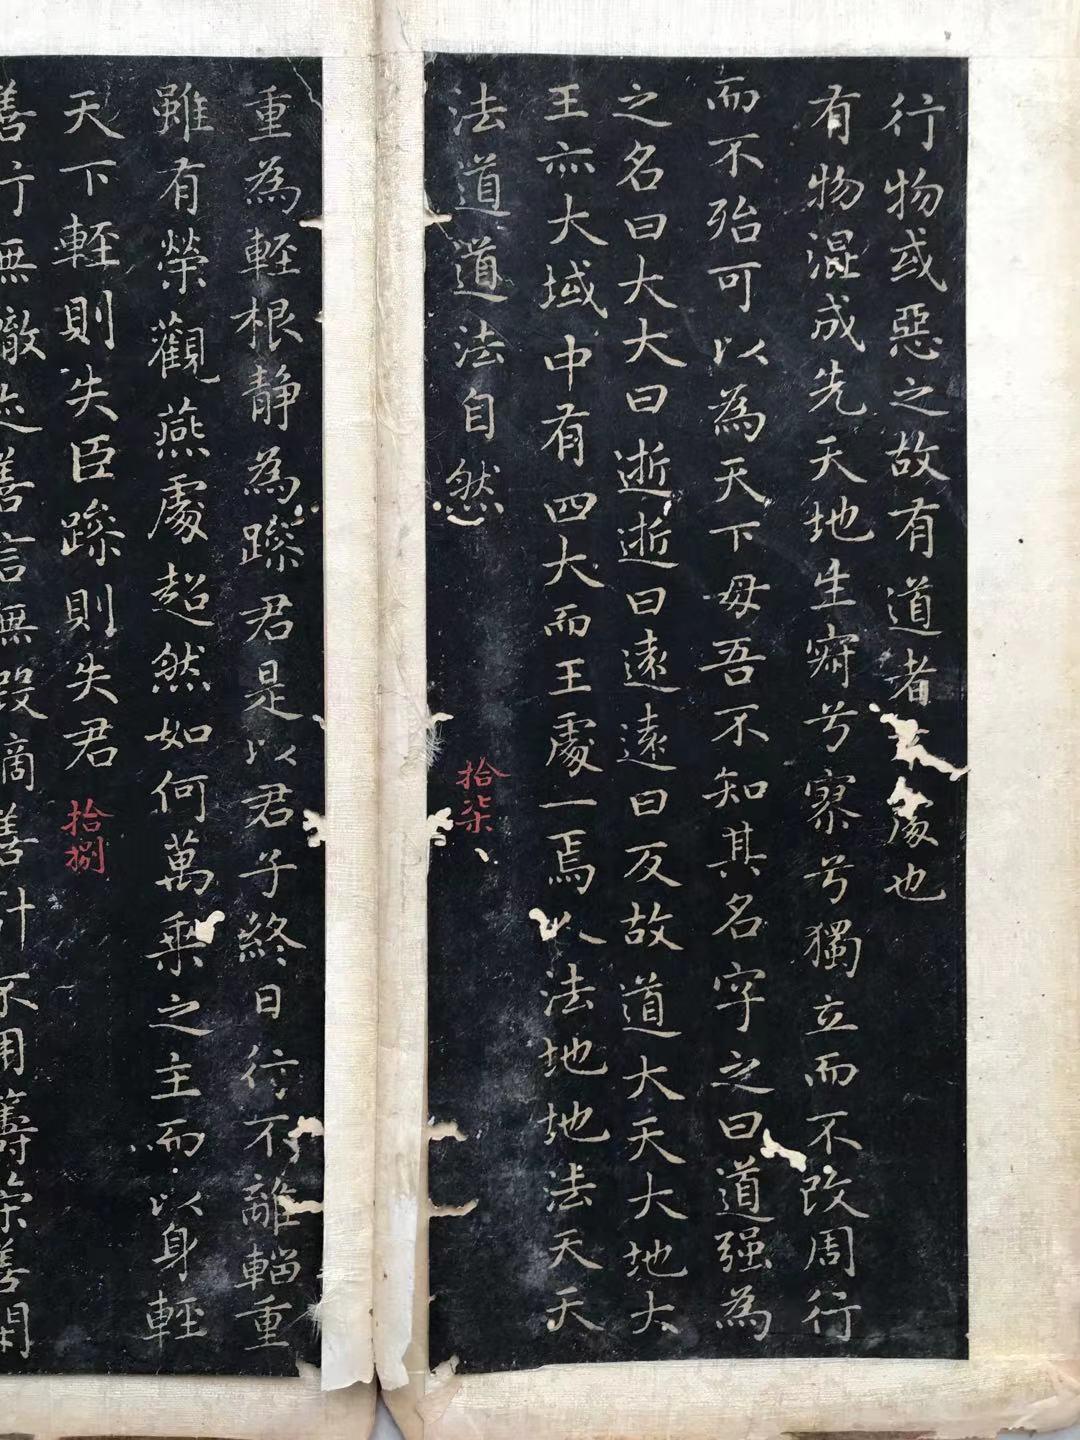 行物或惡之故有道者不處也
有物混成先天地生寂兮寥兮獨立而不改周行
而不殆可以為天下母吾不知其名字之曰道强為
之名曰大大曰逝逝曰遠遠曰反故道大天大地大
王亦大域中有四大而王處一焉人法地地法天天
法道道法自然
拾柒
重為輕根静為躁君是以君子終日行不離輜重
雖有榮觀燕處超然如何萬乘之主而以身輕
天下輕則失臣躁則失君
拾捌
善行無轍迹善言無瑕謫善計不用籌策善閉